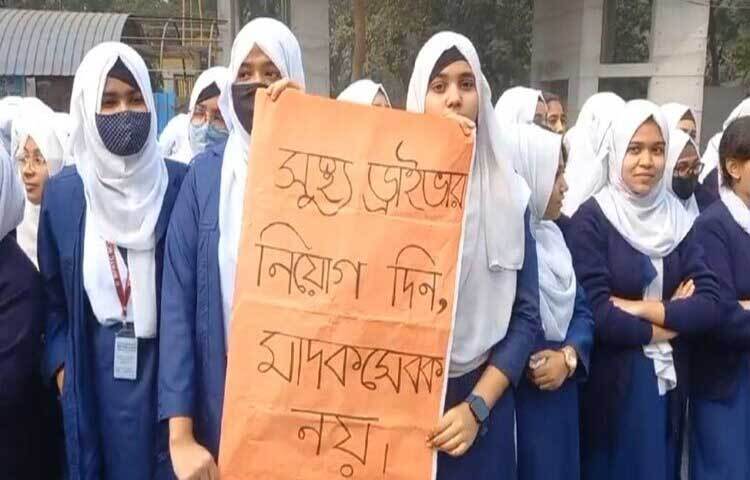 সুস্থ্য ড্রাইভার
নিয়োগ দিন,
মাদকসেবক
নয়।